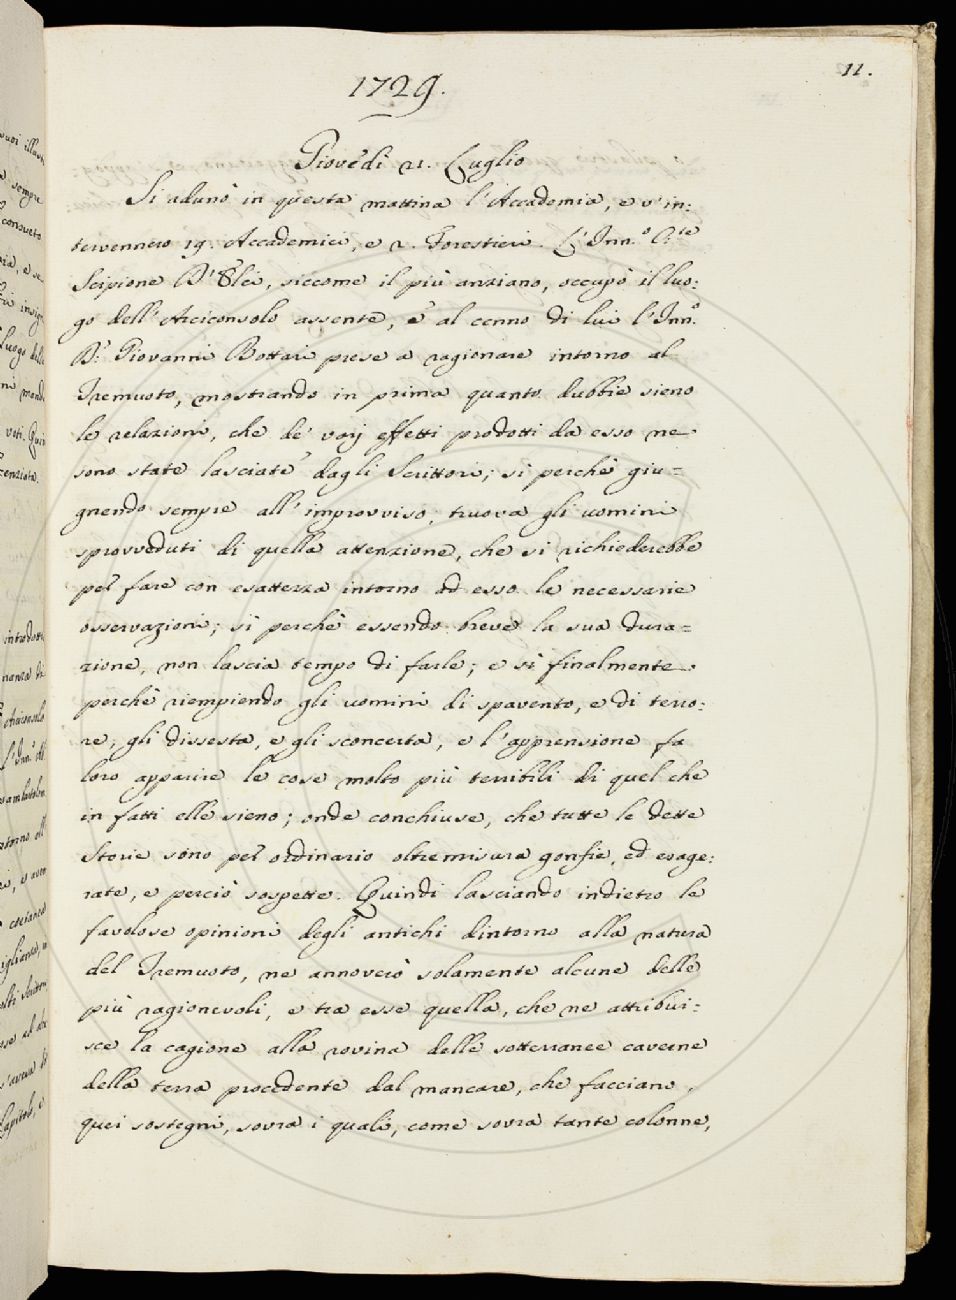 11.
1729.
Giovedì 21. Luglio
Si adunò in questa mattina l'Accademia, e v'in:
tervennero 19. Accademici, e 2. Forestieri. L'Inn.º
Scipione D'Elci, siccome il più anziano, occupò il luo:
go dell'Arciconsolo assente, e al cenno di lui l'Inn.º
D.r Giovanni Bottari prese a ragionare intorno al
Tremuoto, mostrando in prima quanto dubbie sieno
le relazioni, che de' varj effetti prodotti da esso ne
sono state lasciate dagli Scrittori; sì perchè giu=
gnendo sempre all'improvviso, truova gli uomini
sprovveduti di quella attenzione, che si richiederebbe
per fare con esattezza intorno ad esso le necessarie
osservazioni; sì perchè essendo breve la sua dura=
zione, non lascia tempo di farle; e sì finalmente
perchè riempiendo gli uomini di spavento, e di terro:
re, gli dissesta, e gli sconcerta, e l'apprensione fa
loro apparire le cose molto più terribili di quel che
in fatti elle sieno; onde conchiuse, che tutte le dette
Storie sono per ordinario oltremisura gonfie, ed esage:
rate, e perciò sospette. Quindi lasciando indietro le
favolose opinioni degli antichi dintorno alla natura
del Tremuoto, ne annoverò solamente alcune delle
più ragionevoli, e tra esse quella, che ne attribui:
sce la cagione alla rovina delle sotterranee caverne
della terra procedente dal mancare, che facciano
quei sostegni, sovra i quali, come sovra tante colonne,